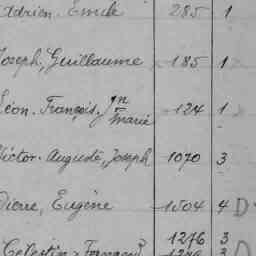 Adrien. Emile 285 1
Joseph, Guillaume 185 1
Léon. François. Jn Marie 124 1
Victor. Auguste, Joseph 1070 3
Pierre, Eugène 1504 4 D
1276 3
Célestin, Fernand 3